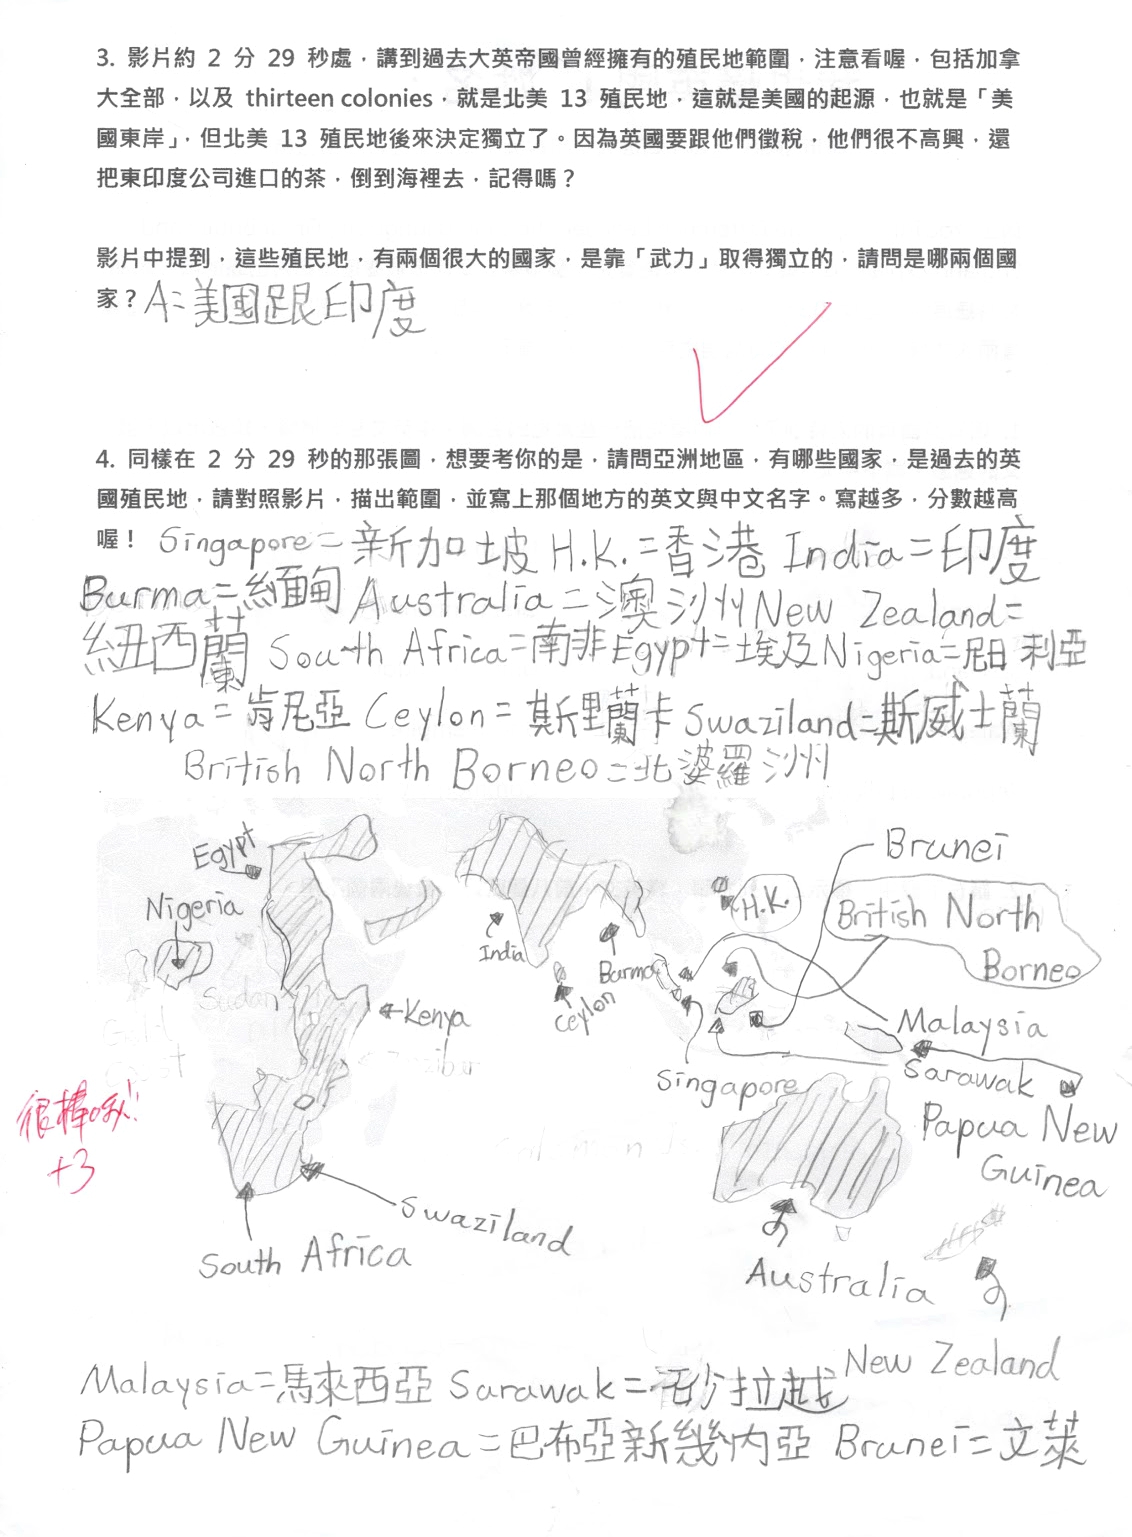 3. 影片約 2 分 29 秒處，講到過去大英帝國曾經擁有的殖民地範圍，注意看喔，包括加拿
大全部，以及 thirteen colonies，就是北美 13 殖民地，這就是美國的起源，也就是「美
國東岸」，但北美 13 殖民地後來決定獨立了。因為英國要跟他們徵稅，他們很不高興，還
把東印度公司進口的茶，倒到海裡去，記得嗎？
影片中提到，這些殖民地，有兩個很大的國家，是靠「武力」取得獨立的，請問是哪兩個國
家？A:美國跟印度
4. 同樣在 2 分 29 秒的那張圖，想要考你的是，請問亞洲地區，有哪些國家，是過去的英
國殖民地，請對照影片，描出範圍，並寫上那個地方的英文與中文名字。寫越多，分數越高
喔！ Singapore=新加坡 H.K.=香港 India=印度
Burma=緬甸 Australia=澳洲 New Zealand=
紐西蘭 South Africa=南非 Egypt=埃及 Nigeria=尼日利亞
Kenya=肯尼亞 Ceylon=斯里蘭卡 Swaziland=斯威士蘭
British North Borneo=北婆羅洲
Brunei
Egypt
H.K.
British North
Borneo
Nigeria
India
Burma
Ceylon
Sudan
Kenya
Malaysia
Singapore
Sarawak
很棒呦!!
+3
Papua New
Guinea
Swaziland
South Africa
Australia
New Zealand
Malaysia=馬來西亞 Sarawak=砂拉越
Papua New Guinea=巴布亞新幾內亞 Brunei=文萊